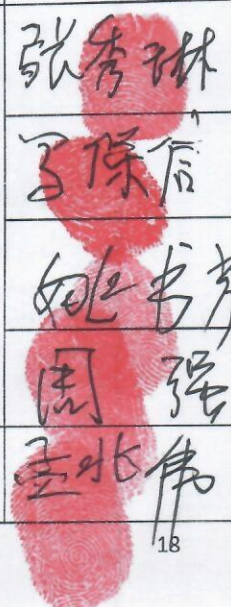 张秀琳
马保信
姚书
周强
孟兆伟
18